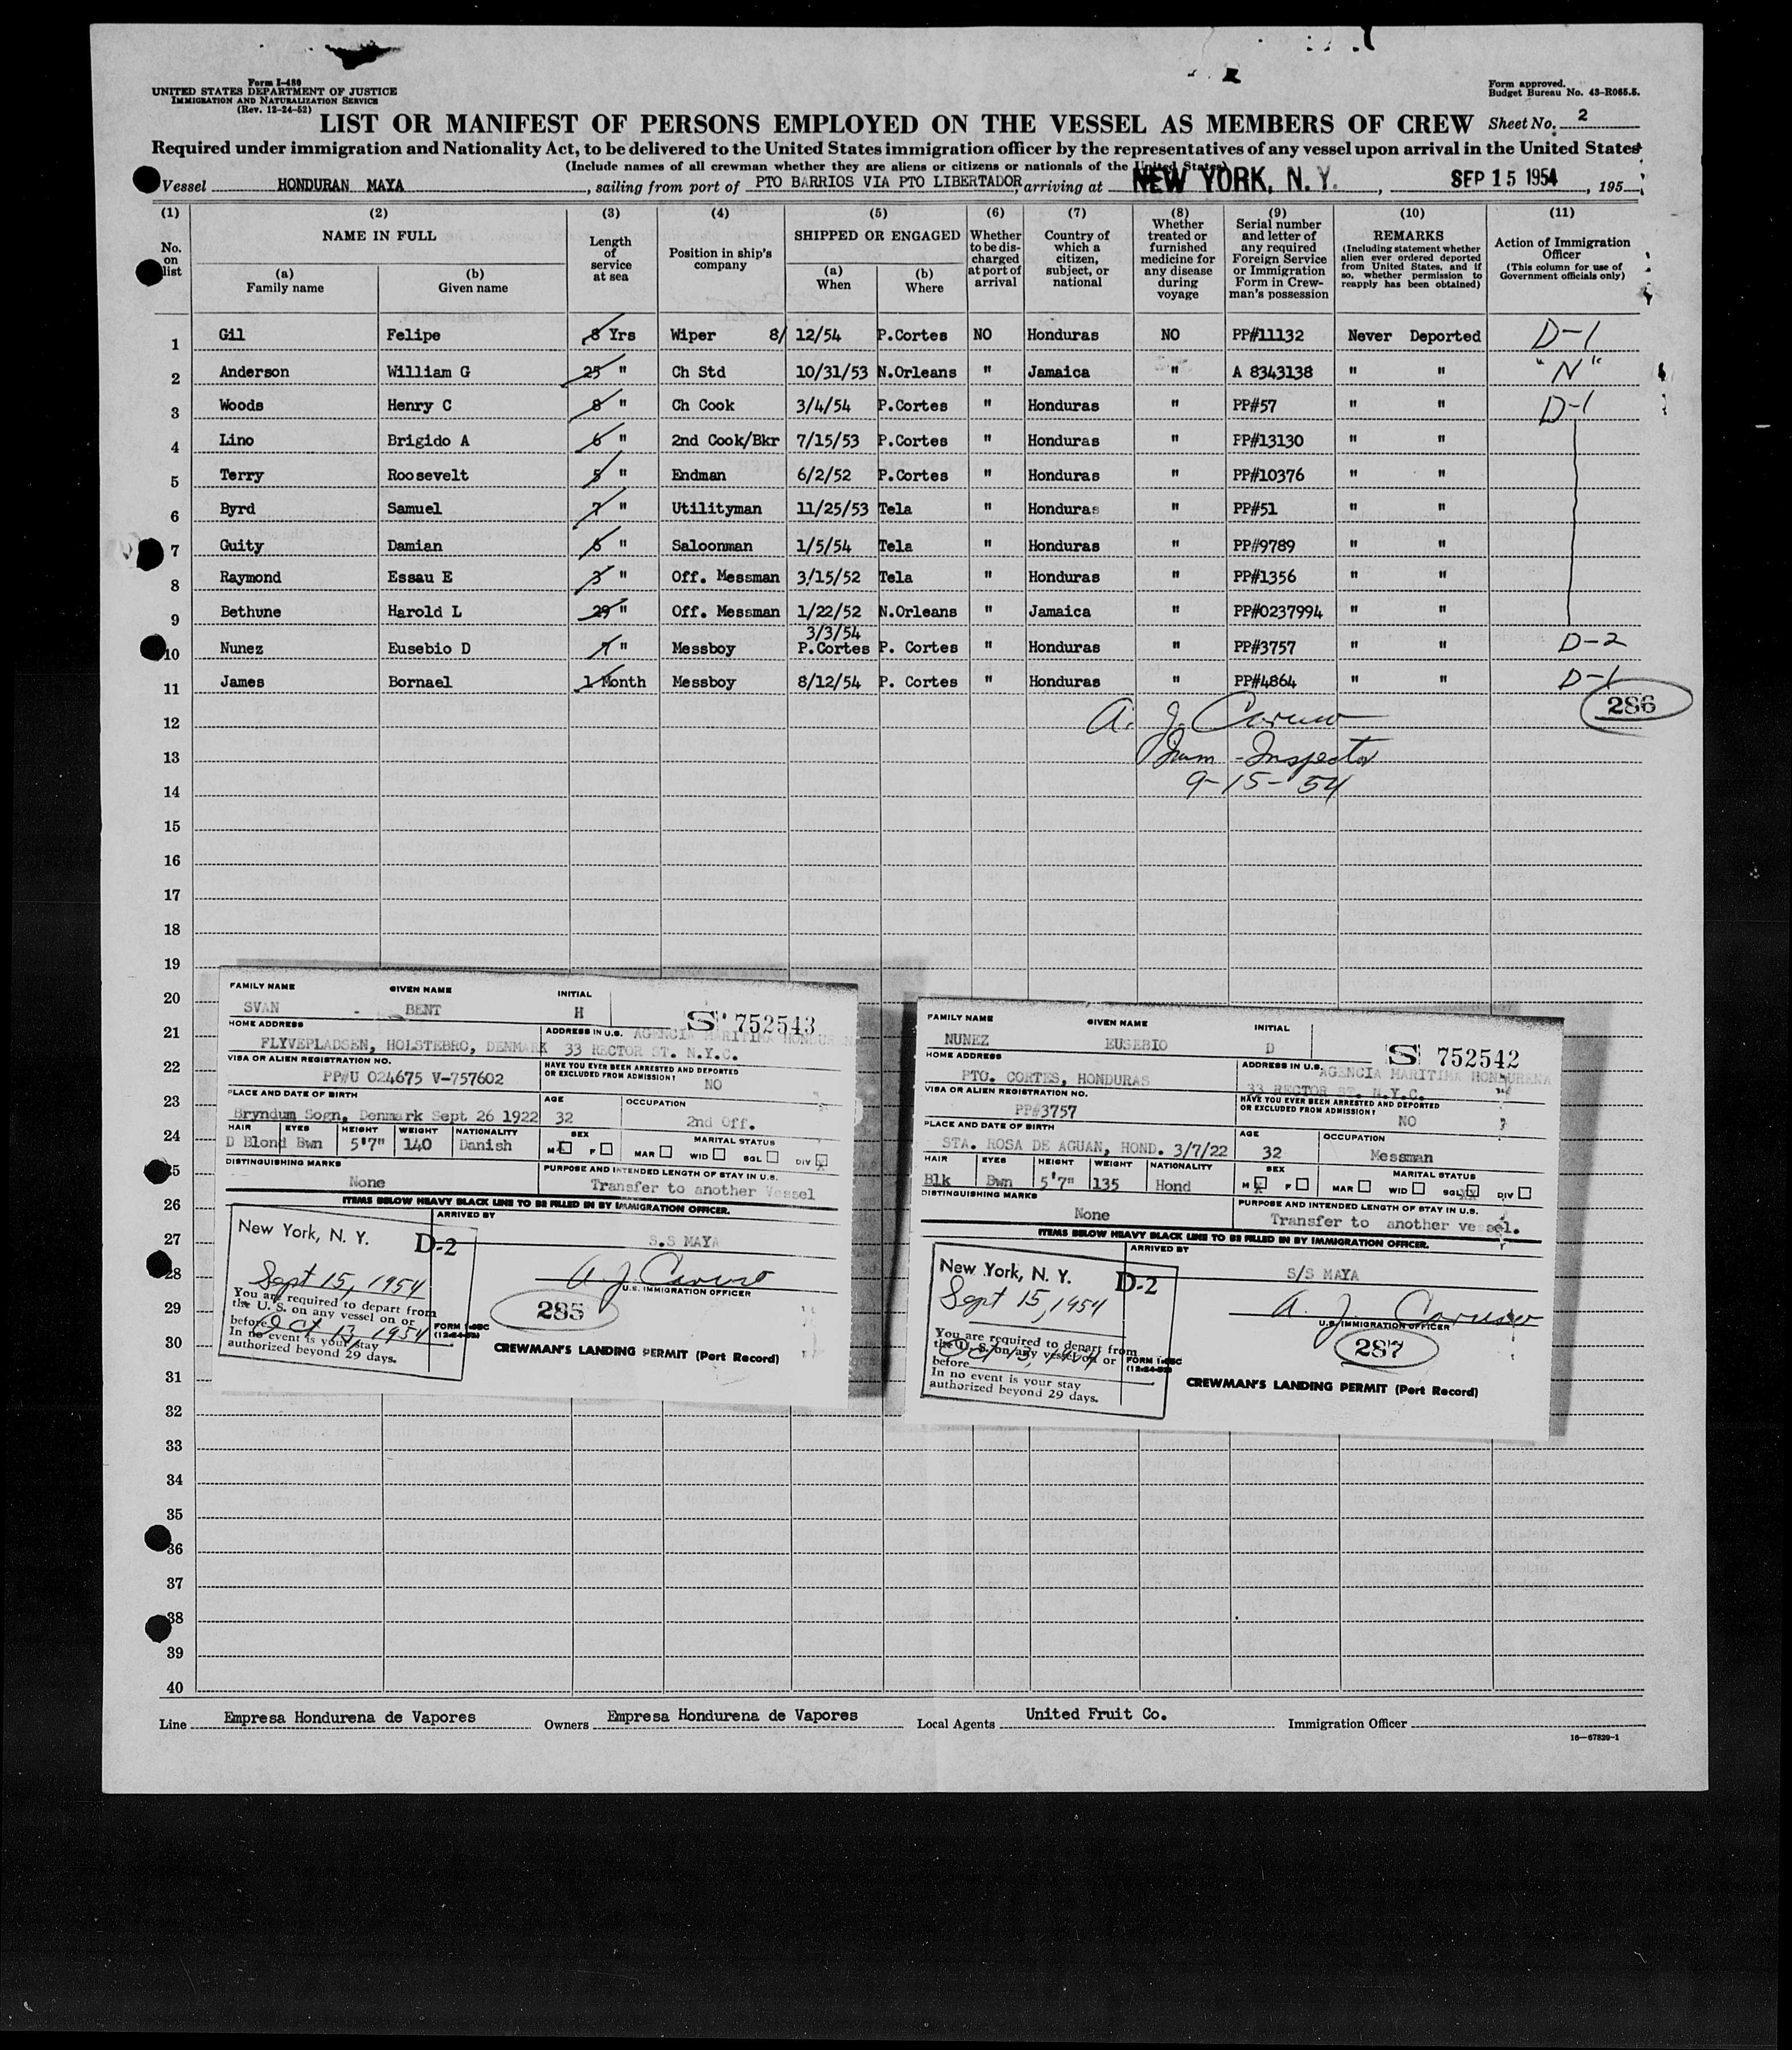 Form I-480
UNITED STATES DEPARTMENT OF JUSTICE
IMMIGRATION AND NATURALIZATION SERVICE
(Rev. 12-24-52)
Form approved.
Budget Bureau No. 43-R065.5.
LIST OR MANIFEST OF PERSONS EMPLOYED ON THE VESSEL AS MEMBERS OF CREW Sheet No. 2
Required under immigration and Nationality Act, to be delivered to the United States immigration officer by the representatives of any vessel upon arrival in the United States
(Include names of all crewman whether they are aliens or citizens or nationals of the United States)
Vessel HONDURAN MAYA, sailing from port of PTO BARRIOS VIA PTO LIBERTADOR, arriving at NEW YORK, N.Y., SEP 15 1954, 195
(1) (2) (3) (4) (5) (6) (7) (8) (9) (10) (11)
No. on list
NAME IN FULL
(a) Family name
(b) Given name
Length of service at sea
Position in ship's company
SHIPPED OR ENGAGED
(a) When
(b) Where
Whether to be discharged at port of arrival
Country of which a citizen, subject, or national
Whether treated or furnished medicine for any disease during voyage
Serial number and letter of any required Foreign Service or Immigration Form in Crewman's possession
REMARKS
(Including statement whether alien ever ordered deported from United States, and if so, whether permission to reapply has been obtained)
Action of Immigration Officer
(This column for use of Government officials only)
1 Gil Felipe 8 Yrs Wiper 8/ 12/54 P.Cortes NO Honduras NO PP#11132 Never Deported D-1
2 Anderson William G 25 " Ch Std 10/31/53 N.Orleans " Jamaica " A 8343138 " " "N"
3 Woods Henry C 8 " Ch Cook 3/4/54 P.Cortes " Honduras " PP#57 " " D-1
4 Lino Brigido A 6 " 2nd Cook/Bkr 7/15/53 P.Cortes " Honduras " PP#13130 " "
5 Terry Roosevelt 5 " Endman 6/2/52 P.Cortes " Honduras " PP#10376 " "
6 Byrd Samuel 7 " Utilityman 11/25/53 Tela " Honduras " PP#51 " "
7 Guity Damian 6 " Saloonman 1/5/54 Tela " Honduras " PP#9789 " "
8 Raymond Essau E 3 " Off. Messman 3/15/52 Tela " Honduras " PP#1356 " "
9 Bethune Harold L 29 " Off. Messman 1/22/52 N.Orleans " Jamaica " PP#0237994 " "
3/3/54
10 Nunez Eusebio D 7 " Messboy P.Cortes P. Cortes " Honduras " PP#3757 " " D-2
11 James Bornael 1 Month Messboy 8/12/54 P. Cortes " Honduras " PP#4864 " " D-1
286
12 A. J. Caruso
13 Imm - Inspector
14 9-15-54
15
16
17
18
19
20
21
22
23
24
25
26
27
28
29
30
31
32
33
34
35
36
37
38
39
40
FAMILY NAME GIVEN NAME INITIAL
SVAN BENT H S 752543
HOME ADDRESS ADDRESS IN U.S. AGENCIA MARITIMA HONDUREN
FLYVEPLADSEN, HOLSTEBRO, DENMARK 33 RECTOR ST. N.Y.C.
VISA OR ALIEN REGISTRATION NO. HAVE YOU EVER BEEN ARRESTED AND DEPORTED OR EXCLUDED FROM ADMISSION?
PP#U 024675 V-757602 NO
PLACE AND DATE OF BIRTH AGE OCCUPATION
Bryndum Sogn, Denmark Sept 26 1922 32 2nd Off.
HAIR EYES HEIGHT WEIGHT NATIONALITY SEX MARITAL STATUS
D Blond Bwn 5'7" 140 Danish M X F MAR WID SGL DIV X
DISTINGUISHING MARKS PURPOSE AND INTENDED LENGTH OF STAY IN U.S.
None Transfer to another Vessel
ITEMS BELOW HEAVY BLACK LINE TO BE FILLED IN BY IMMIGRATION OFFICER.
ARRIVED BY
S.S MAYA
New York, N. Y. D-2
Sept 15, 1954
You are required to depart from
the U. S. on any vessel on or
before Oct 13, 1954
In no event is your stay
authorized beyond 29 days.
A J Caruso
U.S. IMMIGRATION OFFICER
285
CREWMAN'S LANDING PERMIT (Port Record)
FAMILY NAME GIVEN NAME INITIAL
NUNEZ EUSEBIO D S 752542
HOME ADDRESS ADDRESS IN U.S. AGENCIA MARITIMA HONDURENA
PTO. CORTES, HONDURAS 33 RECTOR ST. N.Y.C.
VISA OR ALIEN REGISTRATION NO. HAVE YOU EVER BEEN ARRESTED AND DEPORTED OR EXCLUDED FROM ADMISSION?
PP#3757 NO
PLACE AND DATE OF BIRTH AGE OCCUPATION
STA. ROSA DE AGUAN, HOND. 3/7/22 32 Messman
HAIR EYES HEIGHT WEIGHT NATIONALITY SEX MARITAL STATUS
Blk Bwn 5'7" 135 Hond M X F MAR WID SGL XX DIV
DISTINGUISHING MARKS PURPOSE AND INTENDED LENGTH OF STAY IN U.S.
None Transfer to another vessel.
ITEMS BELOW HEAVY BLACK LINE TO BE FILLED IN BY IMMIGRATION OFFICER.
ARRIVED BY
S/S MAYA
New York, N. Y. D-2
Sept 15, 1954
You are required to depart from
the U. S. on any vessel on or
before Oct 13, 1954
In no event is your stay
authorized beyond 29 days.
A. J. Caruso
U.S. IMMIGRATION OFFICER
287
CREWMAN'S LANDING PERMIT (Port Record)
Line Empresa Hondurena de Vapores Owners Empresa Hondurena de Vapores Local Agents United Fruit Co. Immigration Officer
16—67829-1